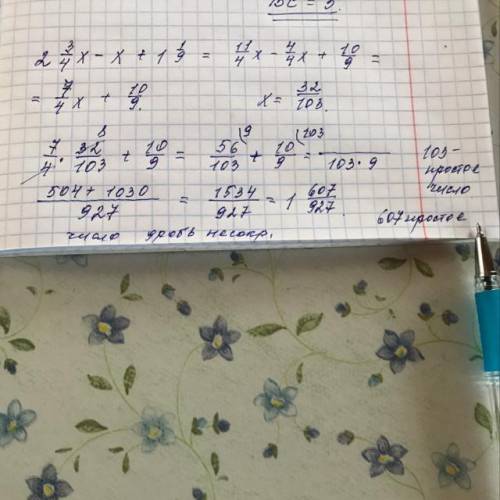 BC = 3.
2 3/4 x - x + 1 1/9 = 11/4 x - 4/4 x + 10/9 =
= 7/4 x + 10/9. x = 32/103.
7/4 · 32/103 + 10/9 = 56/103 + 10/9 = /103·9 103 -
8 9 103 простое
(504 + 1030)/927 = 1534/927 = 1 607/927. число
607 простое
число дробь несокр.